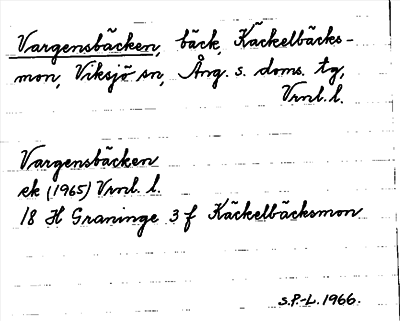 Vargensbäcken, bäck, Käckelbäcks-
mon, Viksjö sn, Ång. s. doms. tg,
Vrnl. l.
Vargensbäcken
ek (1965) Vrnl. l.
18 H Graninge 3 f Käckelbäcksmon
S.P.-L. 1966.